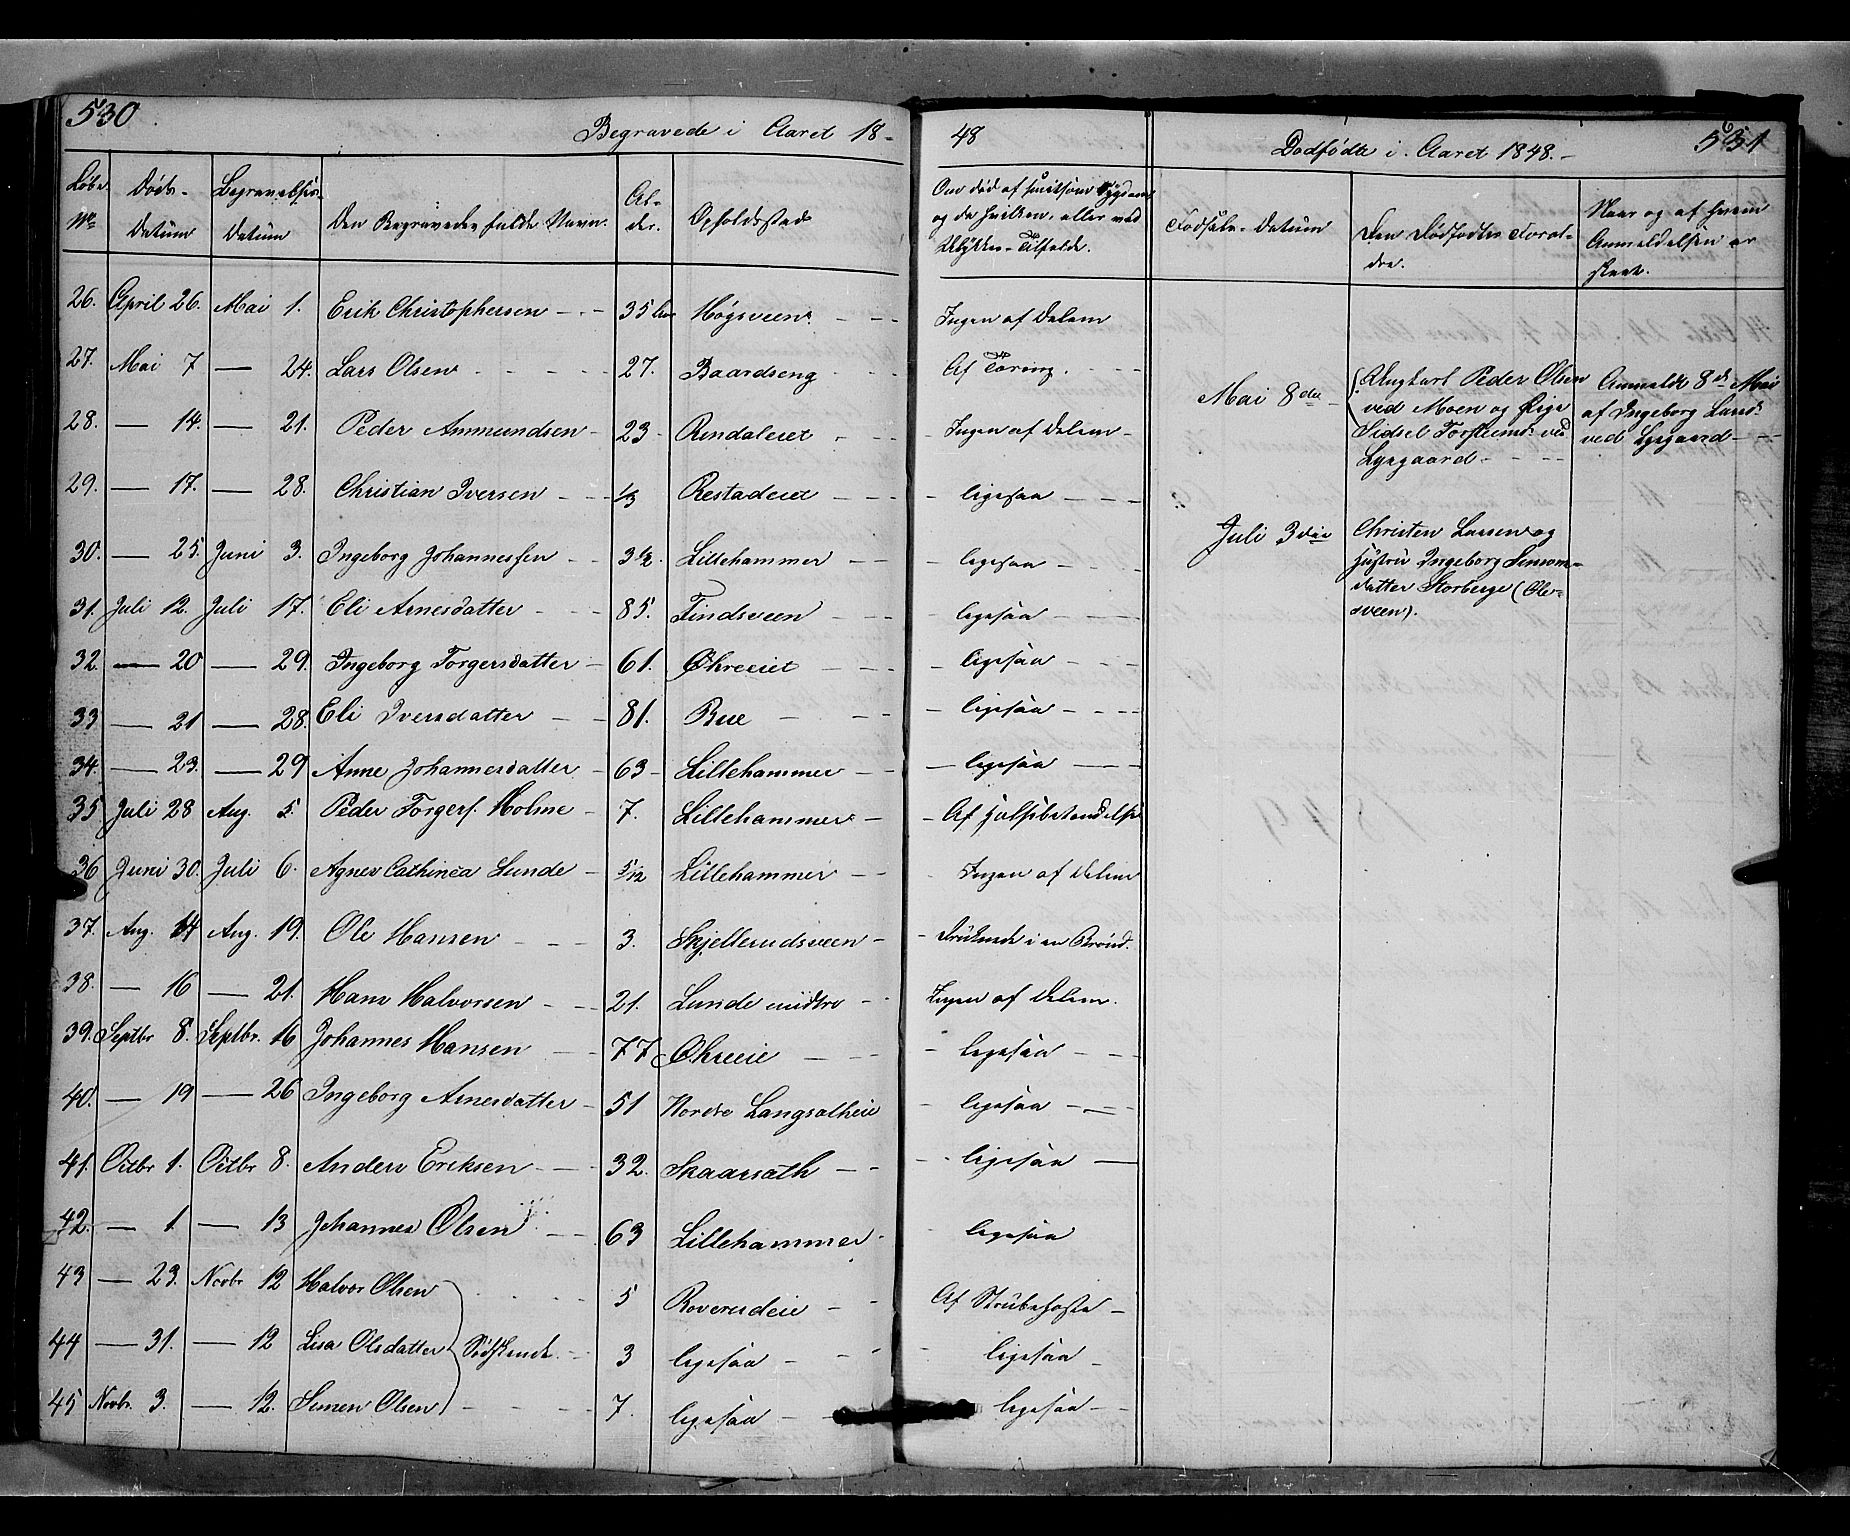 530
Begravede i Aaret 18-
48
Dødfødte i Aaret 1848.-
531
Løbe No
Døds-Datum
Begravelses-Datum
Den Begravedes fulde Navn.
Al-der.
Opholdssted
Om død af smitsom Sygdom
og da hvilken, eller ved
Ulykkes-Tilfælde.
Fødsels-Datum
Den Dødfødtes Foræl-
dre.
Naar og af hvem
Anmeldelsen er
skeet.
26. April 26. Mai 1. Erik Christophersen - 35 Høgsveen - Ingen af Delene
27. Mai 7 — 24. Lars Olsen - 27. Baardseng - Af Tæring.
28. — 14. — 21. Peder Ammundsen - 23 Rindaleiet - Ingen af Delene -
29. — 17. — 28. Christian Iversen - 1/3 Restadeiet - ligesaa -
30. — 25. Juni 3. Ingeborg Johannessen - 3 1/2. Lillehammer - ligesaa -
31. Juli 12. Juli 17. Eli Arnesdatter - 85. Findsveen - ligesaa -
32. — 20 — 29. Ingeborg Torgersdatter - 61. Øhreeiet - ligesaa -
33 — 21 — 28. Eli Iversdatter - 81. Bue - ligesaa -
34. — 23. — 29 Anne Johannesdatter - 63 - Lillehammer - ligesaa -
35 Juli 28 Aug. 5. Peder Torgers. Holme - 7. Lillehammer - Af Halsbetændelse
36 Juni 30. Juli 6. Agnes Cathinca Lunde - 5/12 Lillehammer - Ingen af Delene
37. Aug. 14 Aug. 19. Ole Hansen - 3. Skjellerudsveen - Druknede i en Brønd.
38. — 16 — 21. Hans Halvorsen - 21. Lunde midtre - Ingen af Delene.
39. Septbr 8. Septbr. 16 Johannes Hansen - 77 Øhreeie - ligesaa -
40. — 19 — 26 Ingeborg Arnesdatter - 51 Nordre Langsætheie - ligesaa -
41. Octbr 1. Octbr 8. Anders Eriksen - 32. Skaarsæth - ligesaa -
42. — 1. — 13 Johannes Olsen - 63 Lillehammer - ligesaa
43 — 23. Novbr 12 Halvor Olsen 5 Roverudeie - Af Strubehoste -
44 — 31. — 12 Lisa Olsdatter Sødskende. - 3 ligesaa - ligesaa -
45 Novbr. 3. — 12. Simen Olsen - 7. ligesaa - ligesaa -
Mai 8de - Ungkarl Peder Olsen
ved Moen og Pige
Sidsel Torsteinsd. ved
Lysgaard. -
Anmeldt 8de Mai
af Ingeborg Larsd.
ved Lysgaard -
Juli 3die Christen Larsen og
Hustru Ingeborg Simens-
datter Storberge (Ole-
sveen).